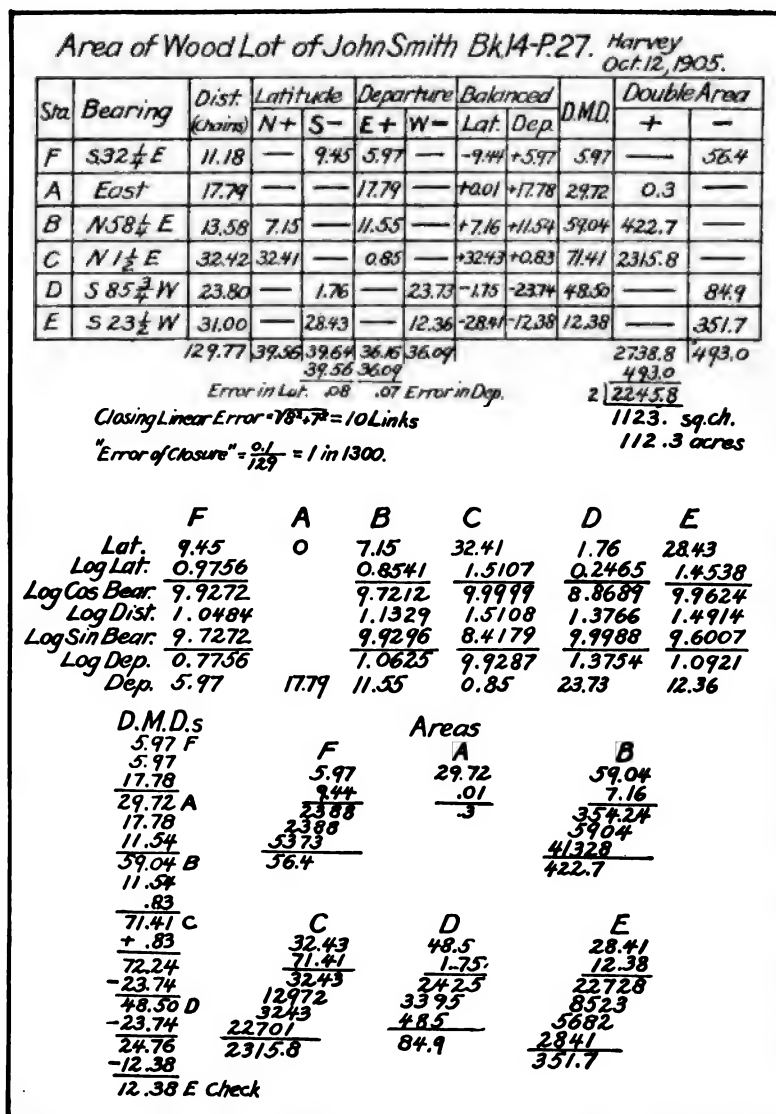 Area of Wood Lot of John Smith Bk.14-P.27. Harvey
Oct. 12, 1905.
Sta. Bearing Dist. (Chains) Latitude Departure Balanced D.M.D. Double Area
N+ S- E+ W- Lat. Dep. + -
F S32¼E 11.18 — 9.45 5.97 — -9.44 +5.97 5.97 — 56.4
A East 17.79 — — 17.79 — +0.01 +17.78 29.72 0.3 —
B N58¼E 13.58 7.15 — 11.55 — +7.16 +11.54 59.04 422.7 —
C N1½E 32.42 32.41 — 0.85 — +32.43 +0.83 71.41 2315.8 —
D S85¾W 23.80 — 1.76 — 23.73 -1.75 -23.74 48.50 — 84.9
E S23½W 31.00 — 28.43 — 12.36 -28.41 -12.38 12.38 — 351.7
129.77 39.56 39.64 36.16 36.09 2738.8 493.0
39.56 36.09 493.0
Error in Lat. .08 .07 Error in Dep. 2 2245.8
Closing Linear Error = √8²+7² = 10 Links 1123. sq.ch.
"Error of Closure" = 0.1/129 = 1 in 1300. 112.3 acres
F A B C D E
Lat. 9.45 0 7.15 32.41 1.76 28.43
Log Lat. 0.9756 0.8541 1.5107 0.2465 1.4538
Log Cos Bear. 9.9272 9.7212 9.9999 8.8689 9.9624
Log Dist. 1.0484 1.1329 1.5108 1.3766 1.4914
Log Sin Bear. 9.7272 9.9296 8.4179 9.9988 9.6007
Log Dep. 0.7756 1.0625 9.9287 1.3754 1.0921
Dep. 5.97 17.79 11.55 0.85 23.73 12.36
D.M.D.s
5.97 F
5.97
17.78
29.72 A
17.78
11.54
59.04 B
11.54
.83
71.41 C
+ .83
72.24
-23.74
48.50 D
-23.74
24.76
-12.38
12.38 E Check
Areas
F
5.97
9.44
2388
2388
5373
56.4
A
29.72
.01
.3
B
59.04
7.16
354.24
5904
41328
422.7
C
32.43
71.41
3243
12972
3243
22701
2315.8
D
48.5
1.75
2425
3395
485
84.9
E
28.41
12.38
22728
8523
5682
2841
351.7